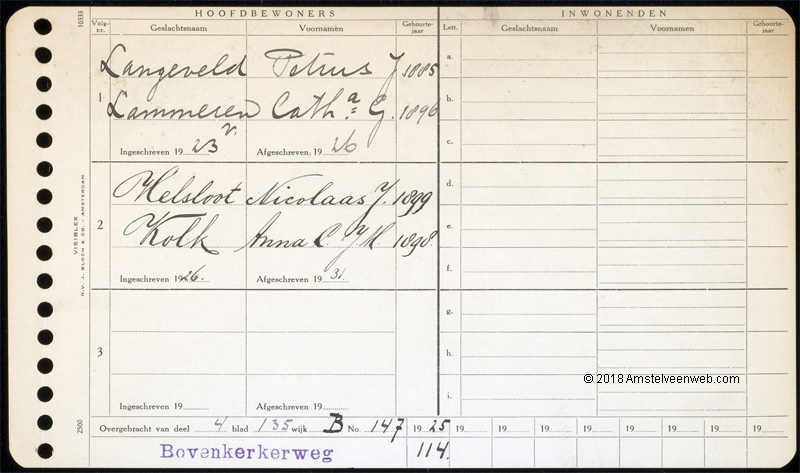 HOOFDBEWONERS INWONENDEN
Volg-nr. Geslachtsnaam Voornamen Geboorte-jaar Lett. Geslachtsnaam Voornamen Geboorte-jaar
Langeveld Petrus J 1885 a.
1
Lammeren Cath.ª G. 1896 b.
v. c.
Ingeschreven 1923 Afgeschreven 1926
Helsloot Nicolaas J. 1899 d.
2
Kolk Anna C. J H. 1898. e.
f.
Ingeschreven 1926. Afgeschreven 1931.
g.
3 h.
i.
Ingeschreven 19 Afgeschreven 19
© 2018 Amstelveenweb.com
Overgebracht van deel 4 blad 135 wijk B No. 147 1925 19 19 19 19 19 19 19
Bovenkerkerweg 114.
10333
VISIBLEX
N.V. J. BLOCH & CO. - AMSTERDAM
2500